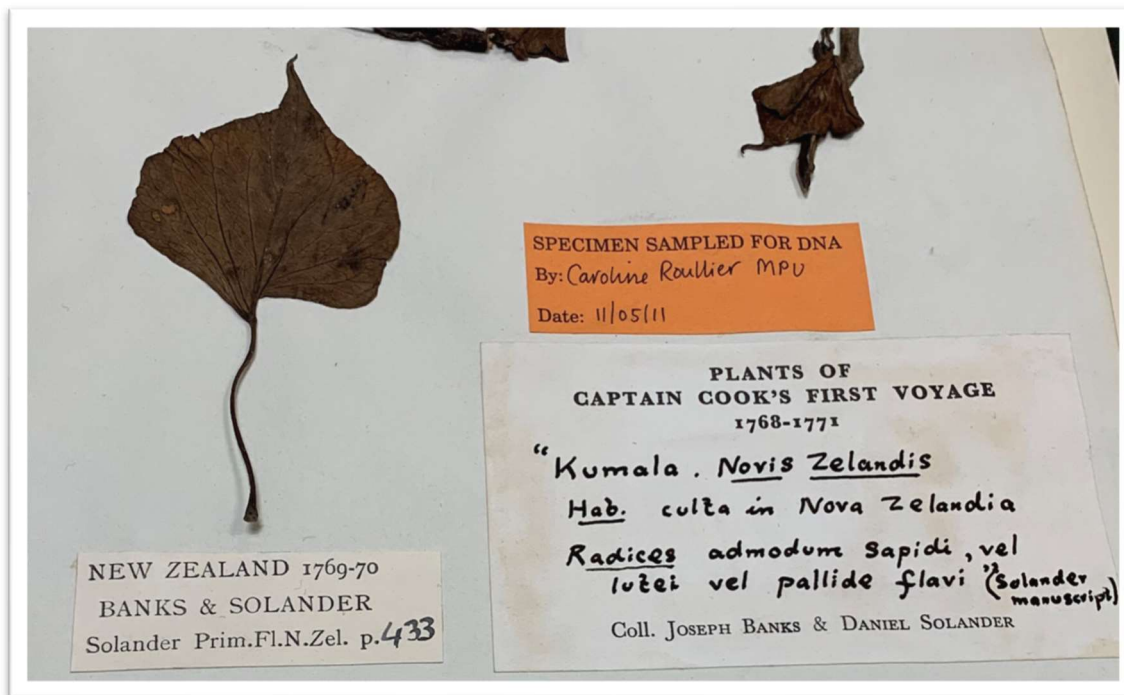 SPECIMEN SAMPLED FOR DNA
By: Caroline Roullier MPU
Date: 11/05/11
PLANTS OF
CAPTAIN COOK'S FIRST VOYAGE
1768-1771
"Kumala. Novis Zelandis
Hab. culta in Nova Zelandia
Radices admodum sapidi, vel
lutei vel pallide flavi" (Solander
manuscript)
Coll. JOSEPH BANKS & DANIEL SOLANDER
NEW ZEALAND 1769-70
BANKS & SOLANDER
Solander Prim.Fl.N.Zel. p.433